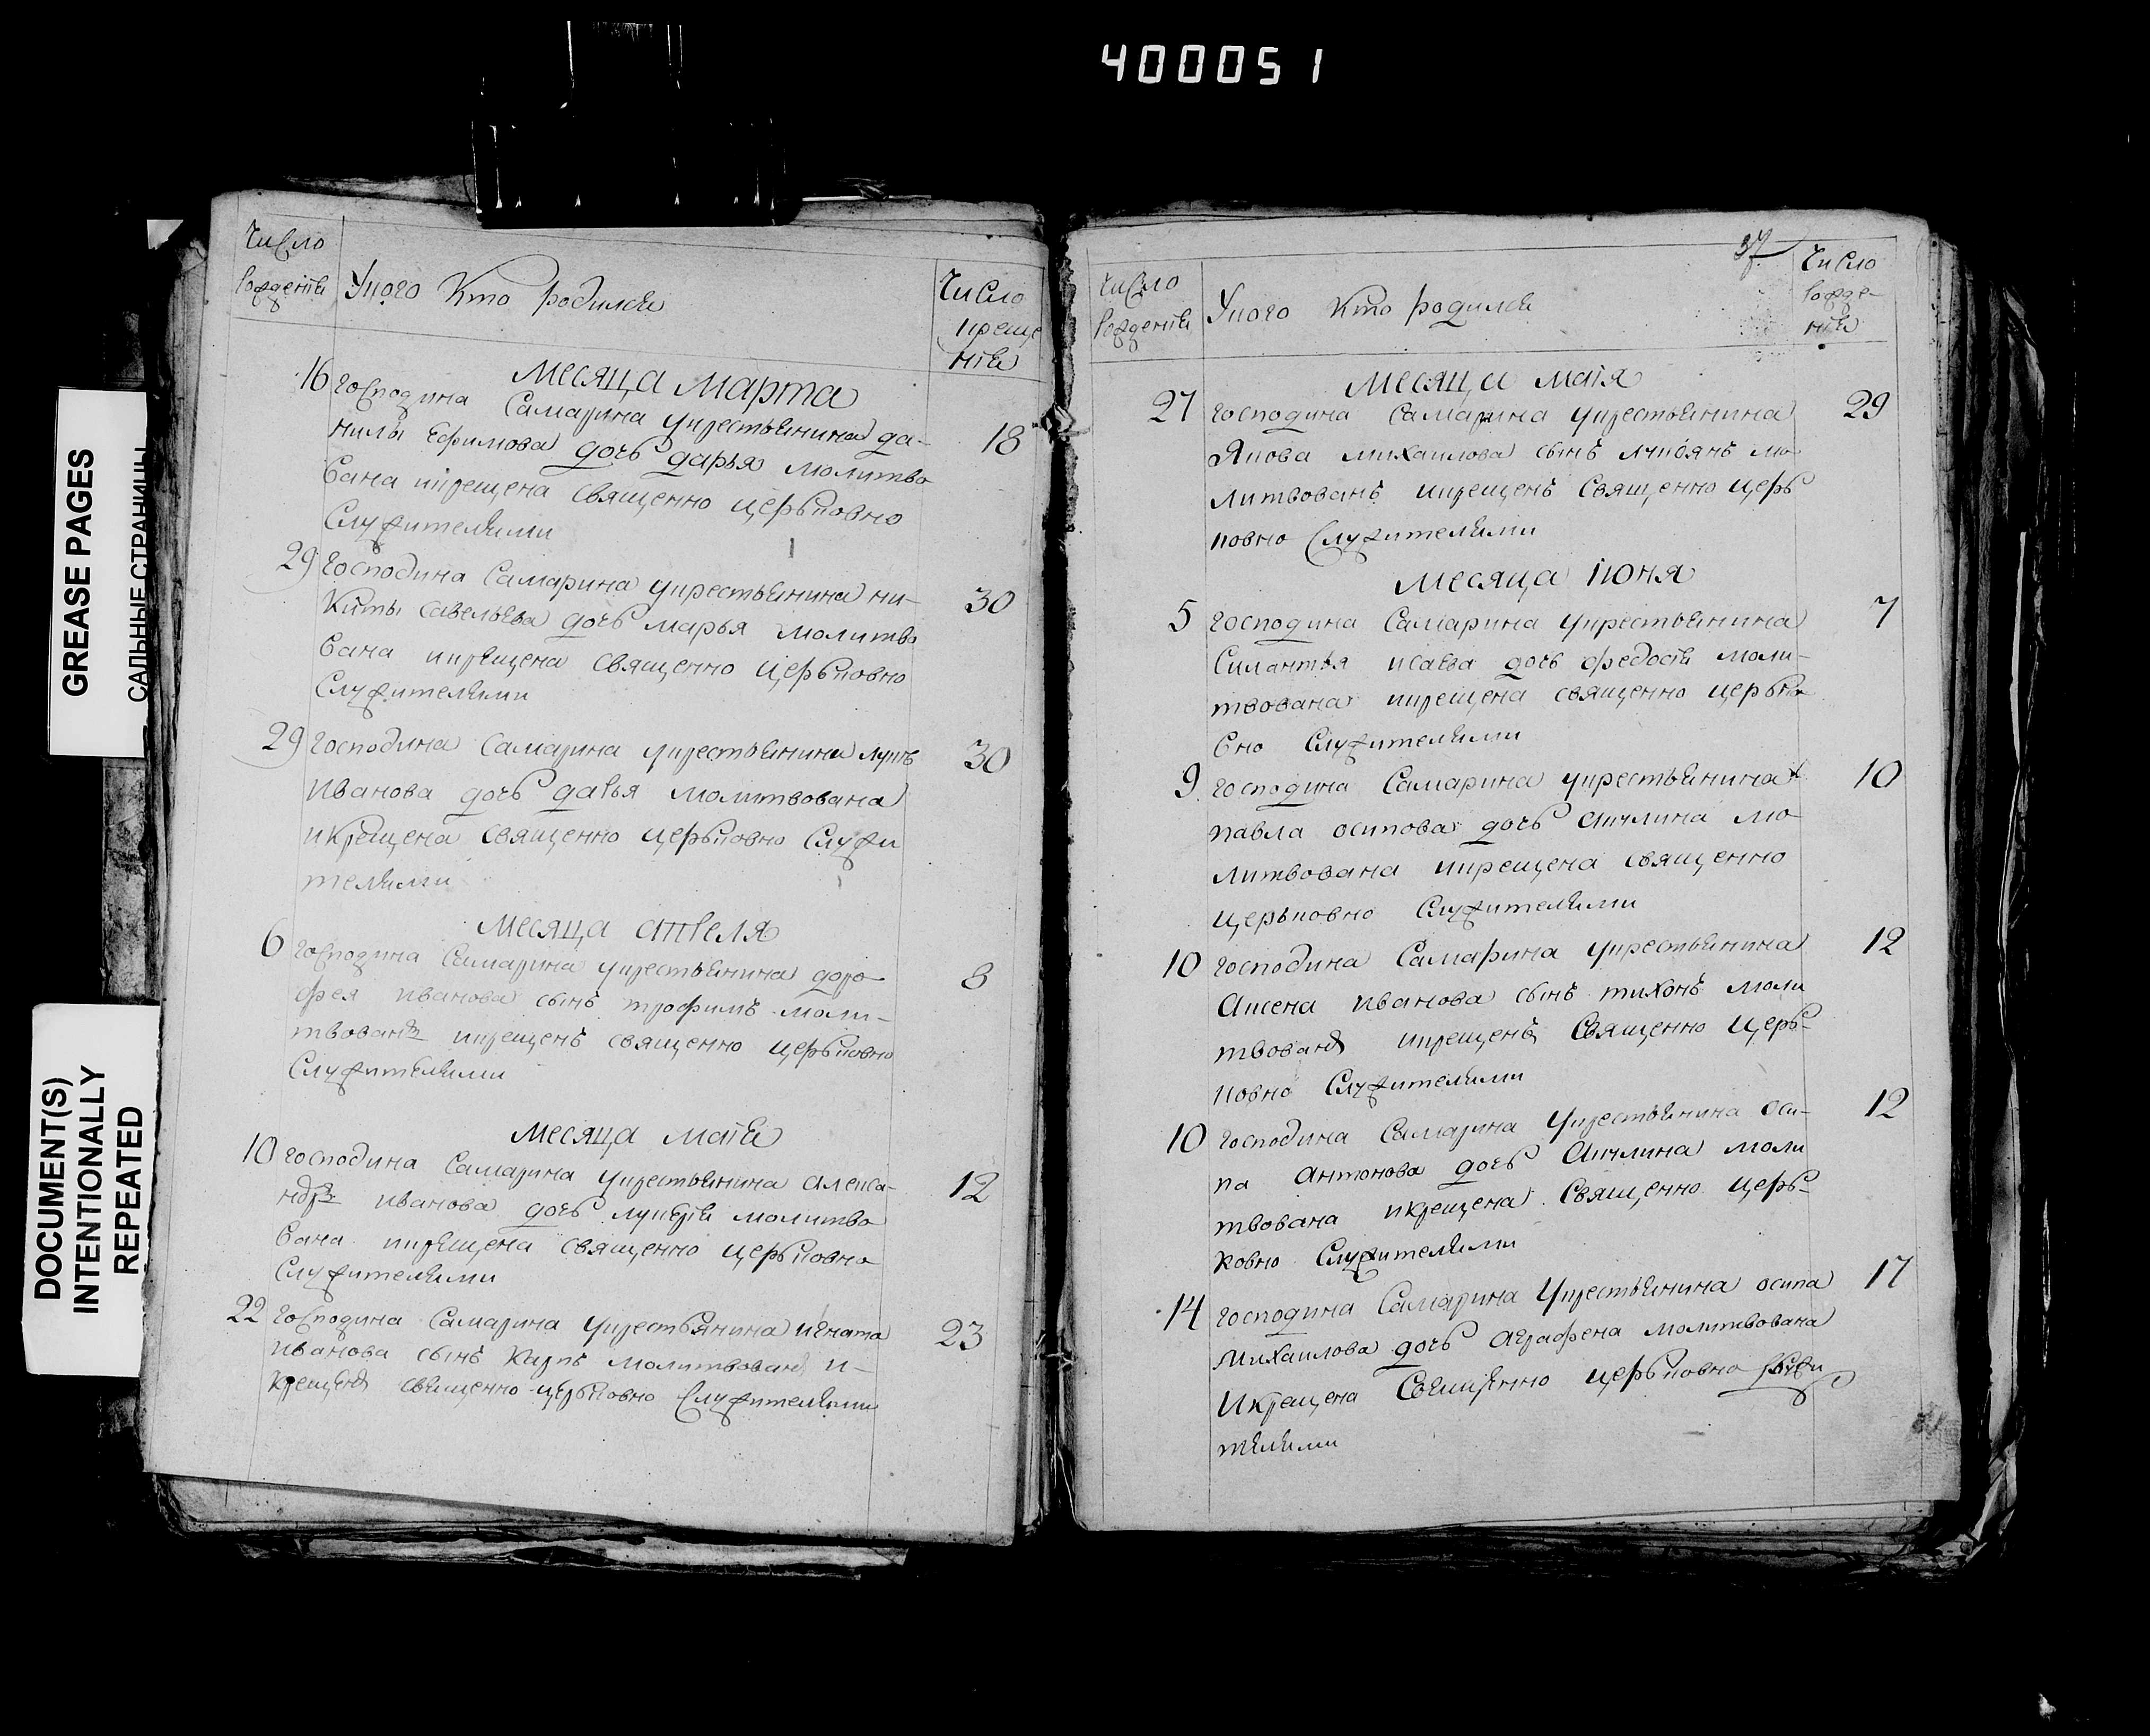 400051
GREASE PAGES
САЛЬНЫЕ СТРАНИЦЫ
DOCUMENT(S)
INTENTIONALLY
REPEATED
Число
рожденїя
Укого Кто родился
Число
креще
нїя
месяца марта
16 господина Самарина укрестьянина да- 18
нилы Ефимова дочь дарья молитво
вана икрещена священно церьковно
Служителями
29 господина Самарина укрестьянина ни- 30
киты савельева дочь марья молитво
вана икрещена священно церьковно
Служителями
29 господина Самарина укрестьянина 30
иванова дочь дарья молитвована
икрещена священно церьковно Служи
телями
месяца апреля
6 господина Самарина укрестьянина доро- 8
фея иванова сынъ трофимъ моли-
твованъ икрещенъ священно церьковно
Служителями
месяца маїя
10 господина Самарина укрестьянина алекса- 12
ндра иванова дочь лукерїя молитво
вана икрещена священно церьковно
Служителями
22 господина Самарина укрестьянина игната 23
иванова сынъ карпъ молитвованъ и-
крещенъ священно церьковно Служителями
37
Число
рожденїя
Укого Кто родился
Число
рожде-
нїя
месяца маїя
27 господина Самарина укрестьянина 29
Якова михаилова сынъ лукьянъ мо
литвованъ икрещенъ священно церь
ковно Служителями
месяца їюня
5 господина Самарина укрестьянина 7
Силантья исаева дочь федосїя моли-
твована икрещена священно церько
вно Служителями
9 господина Самарина укрестьянина 10
павла осипова дочь акулина мо
литвована икрещена священно
церьковно Служителями
10 господина Самарина укрестьянина 12
Аксена иванова сынъ тихонъ моли
твованъ икрещенъ Священно церь-
ковно Служителями
10 господина Самарина укрестьянина оси- 12
па Антонова дочь Акулина моли
твована икрещена Священно церь-
ковно Служителями
14 господина Самарина укрестьянина осипа 17
михаилова дочь аграфена молитвована
Икрещена Священно церьковно Служи
телями